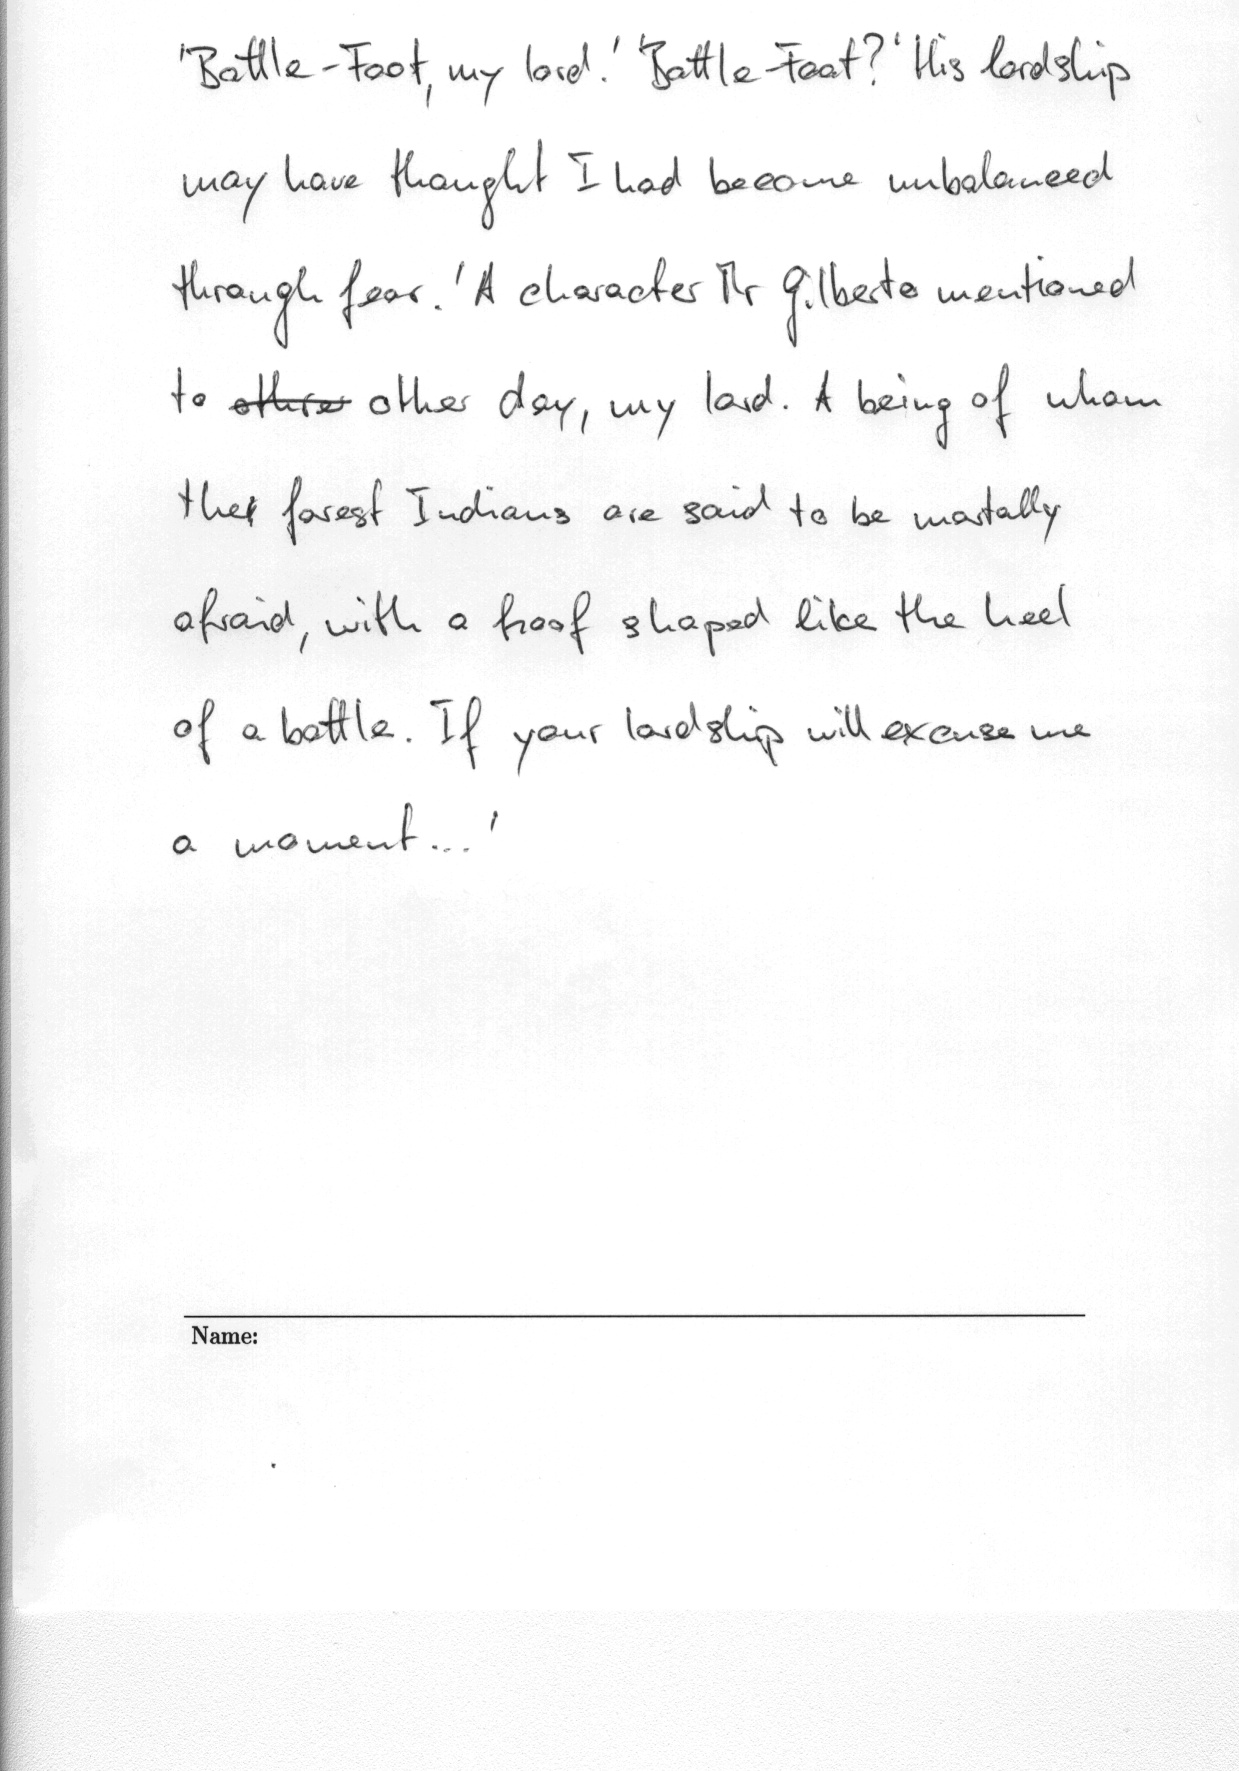 'Bottle-Foot, my lord.' 'Bottle-Foot?' His lordship
may have thought I had become unbalanced
through fear. 'A character Mr Gilberto mentioned
to other day, my lord. A being of whom
the forest Indians are said to be mortally
afraid, with a hoof shaped like the heel
of a bottle. If your lordship will excuse me
a moment...'
Name: